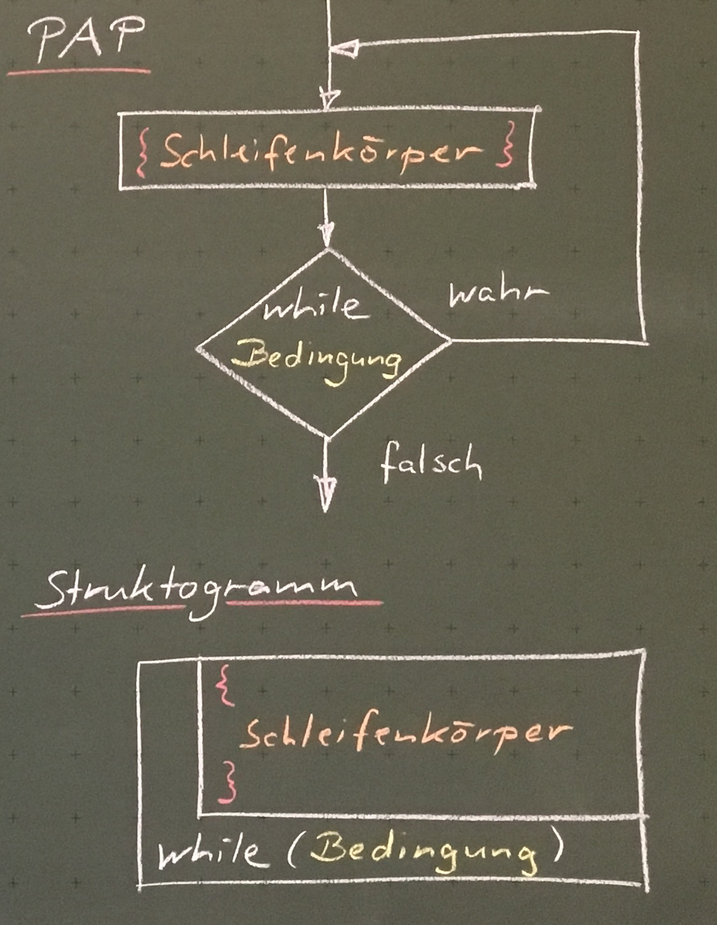 PAP
{ Schleifenkörper }
while
Bedingung
wahr
falsch
Struktogramm
{
Schleifenkörper
}
while (Bedingung)